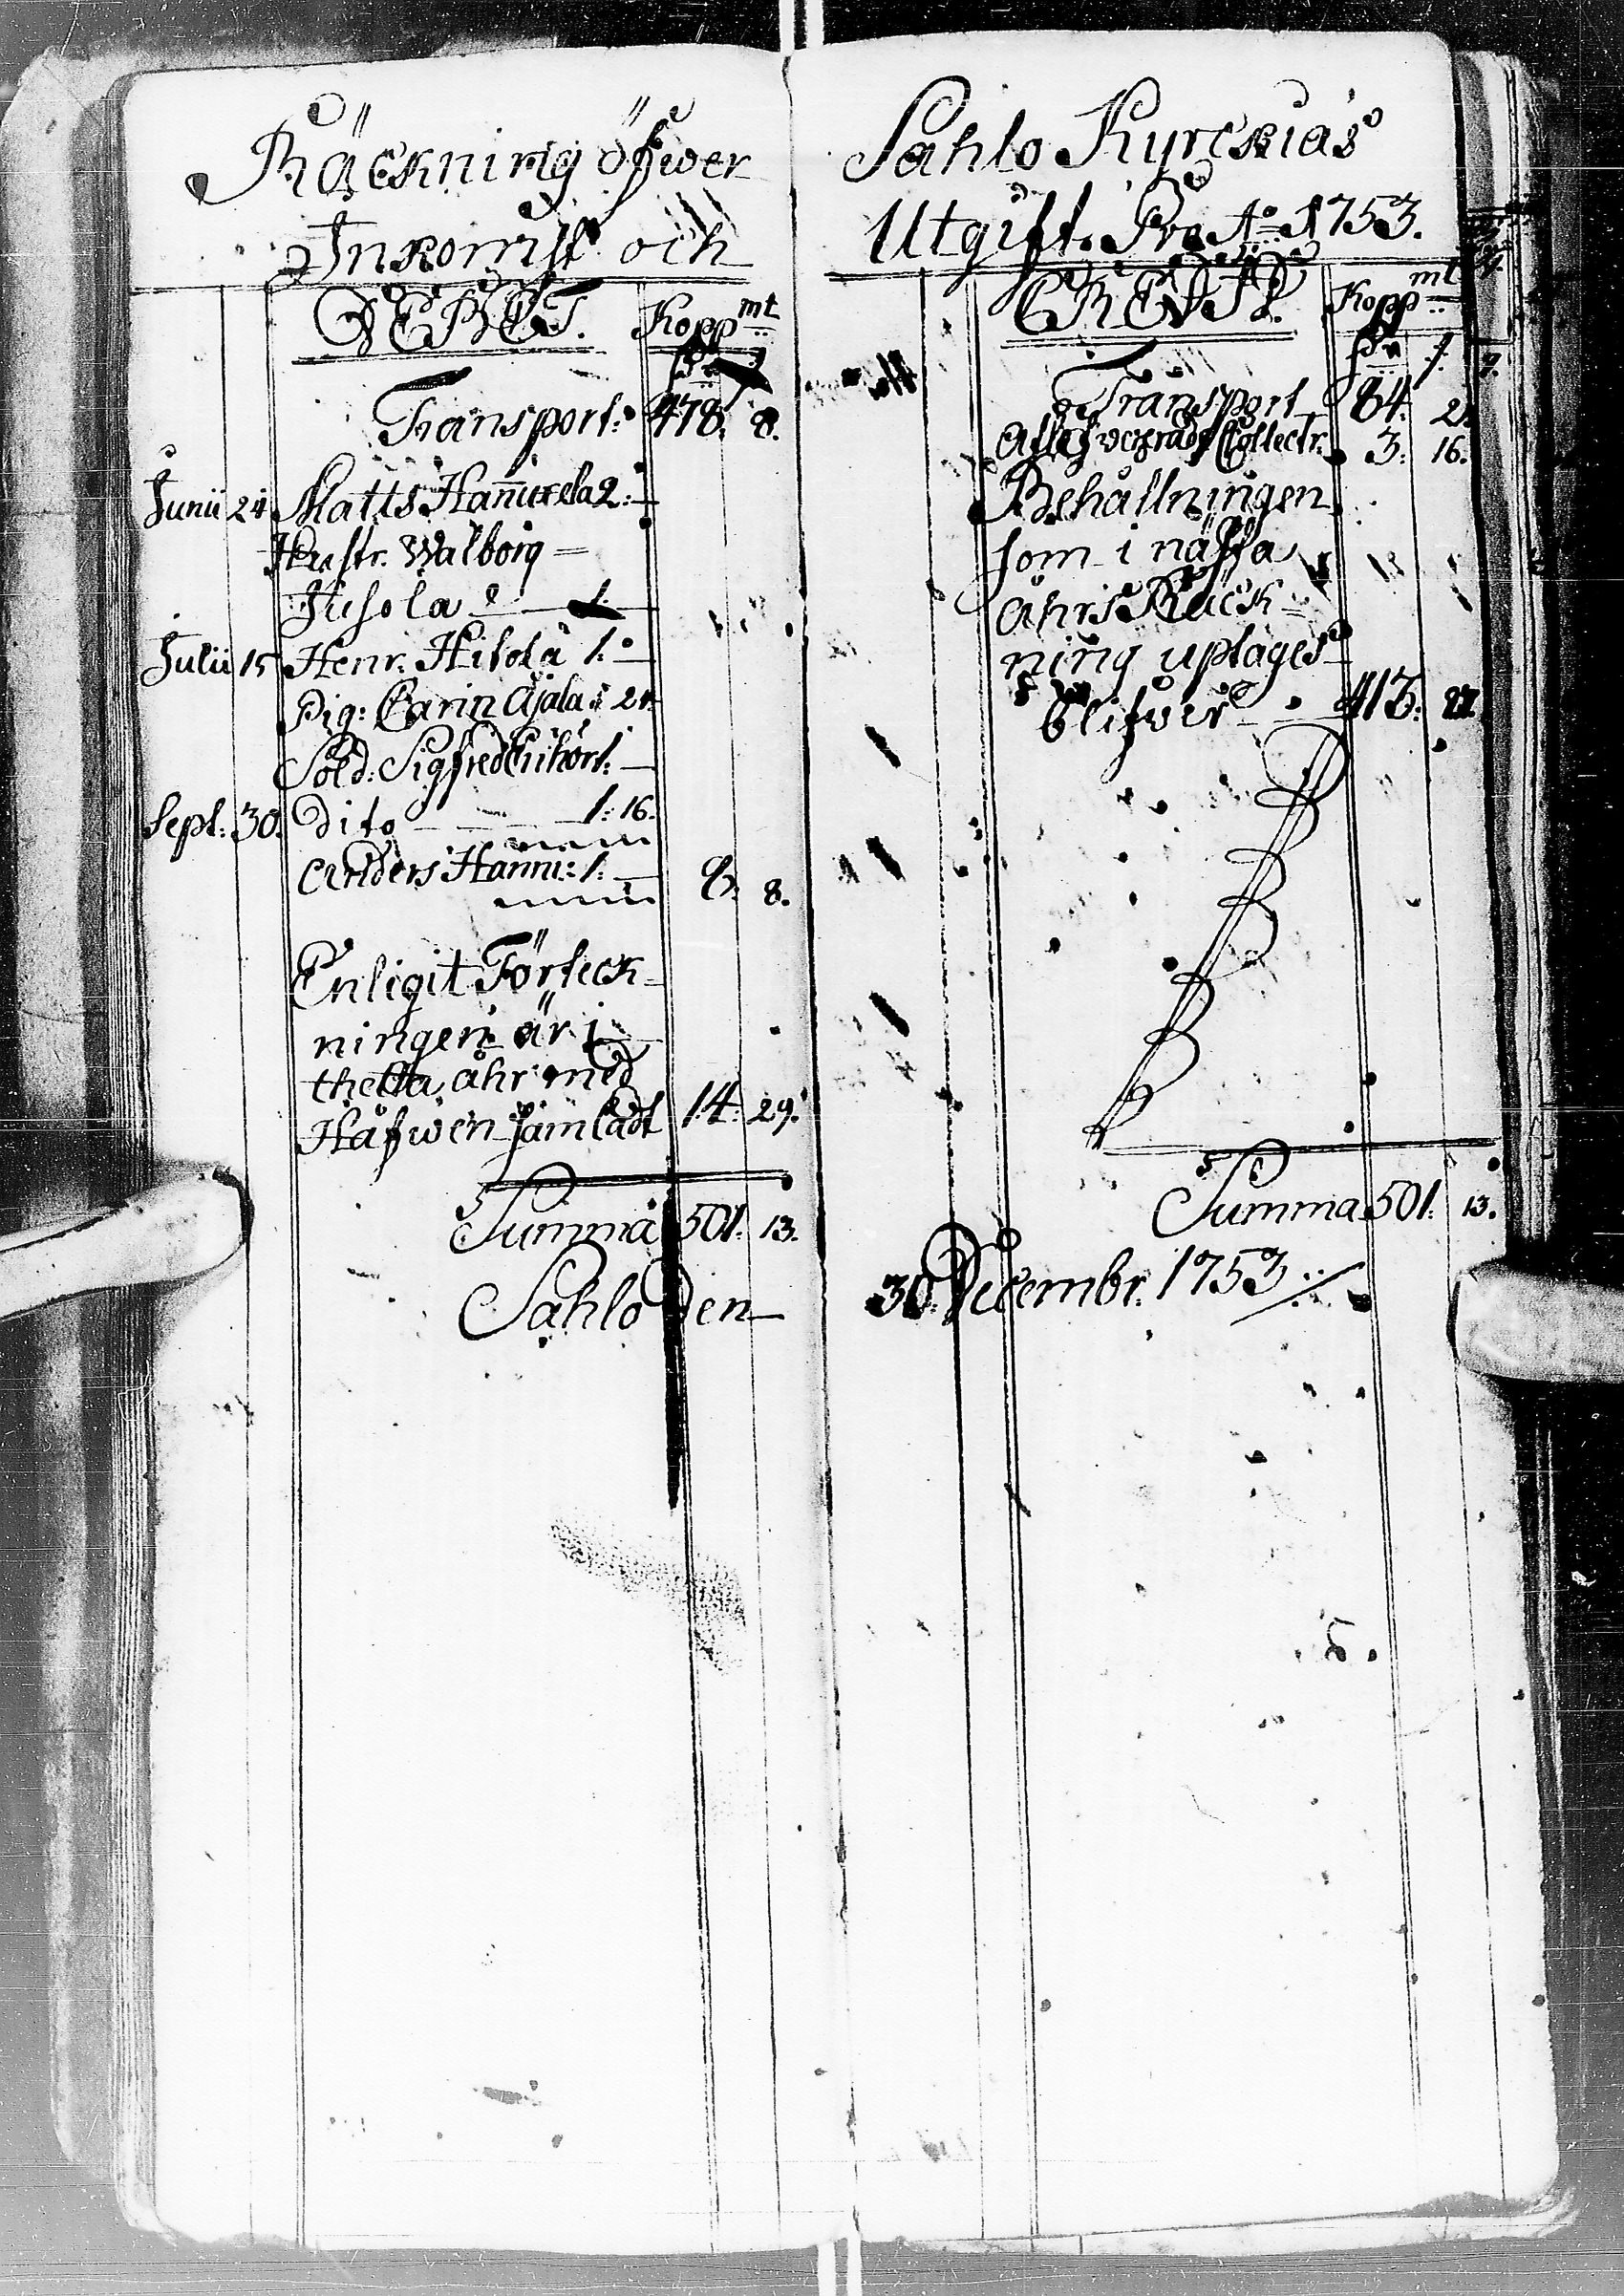 Räckning öfwer
Inkomst och
DEBET. Kopp mt
Transport: 478. 8.
Junii 24 Matts Hannuxela 2:
Hustr. Walborg
Jusola 1:
Julii 15 Henr. Hilola 1:
Pig: Carin Ajala 24
Sold: Sigfred 1:
Sept: 30. Dito 1: 16.
Anders Hannu: 1: 8: 8.
Enligit Förteck-
ningen är i
thetta åhr med
Håfwen samladt 14: 29.
Summa 501: 13.
Sahlo Den
Sahlo Kyrckias
Utgift. Pro Ao 1753.
CREDIT. Kopp mt
Transport 84: 2.
Collectr. 3: 16.
Behållningen
som i nästa
åhrs Räck-
ning uptages
blifwer 413: 27
Summa 501: 13.
30. Decembr. 1753